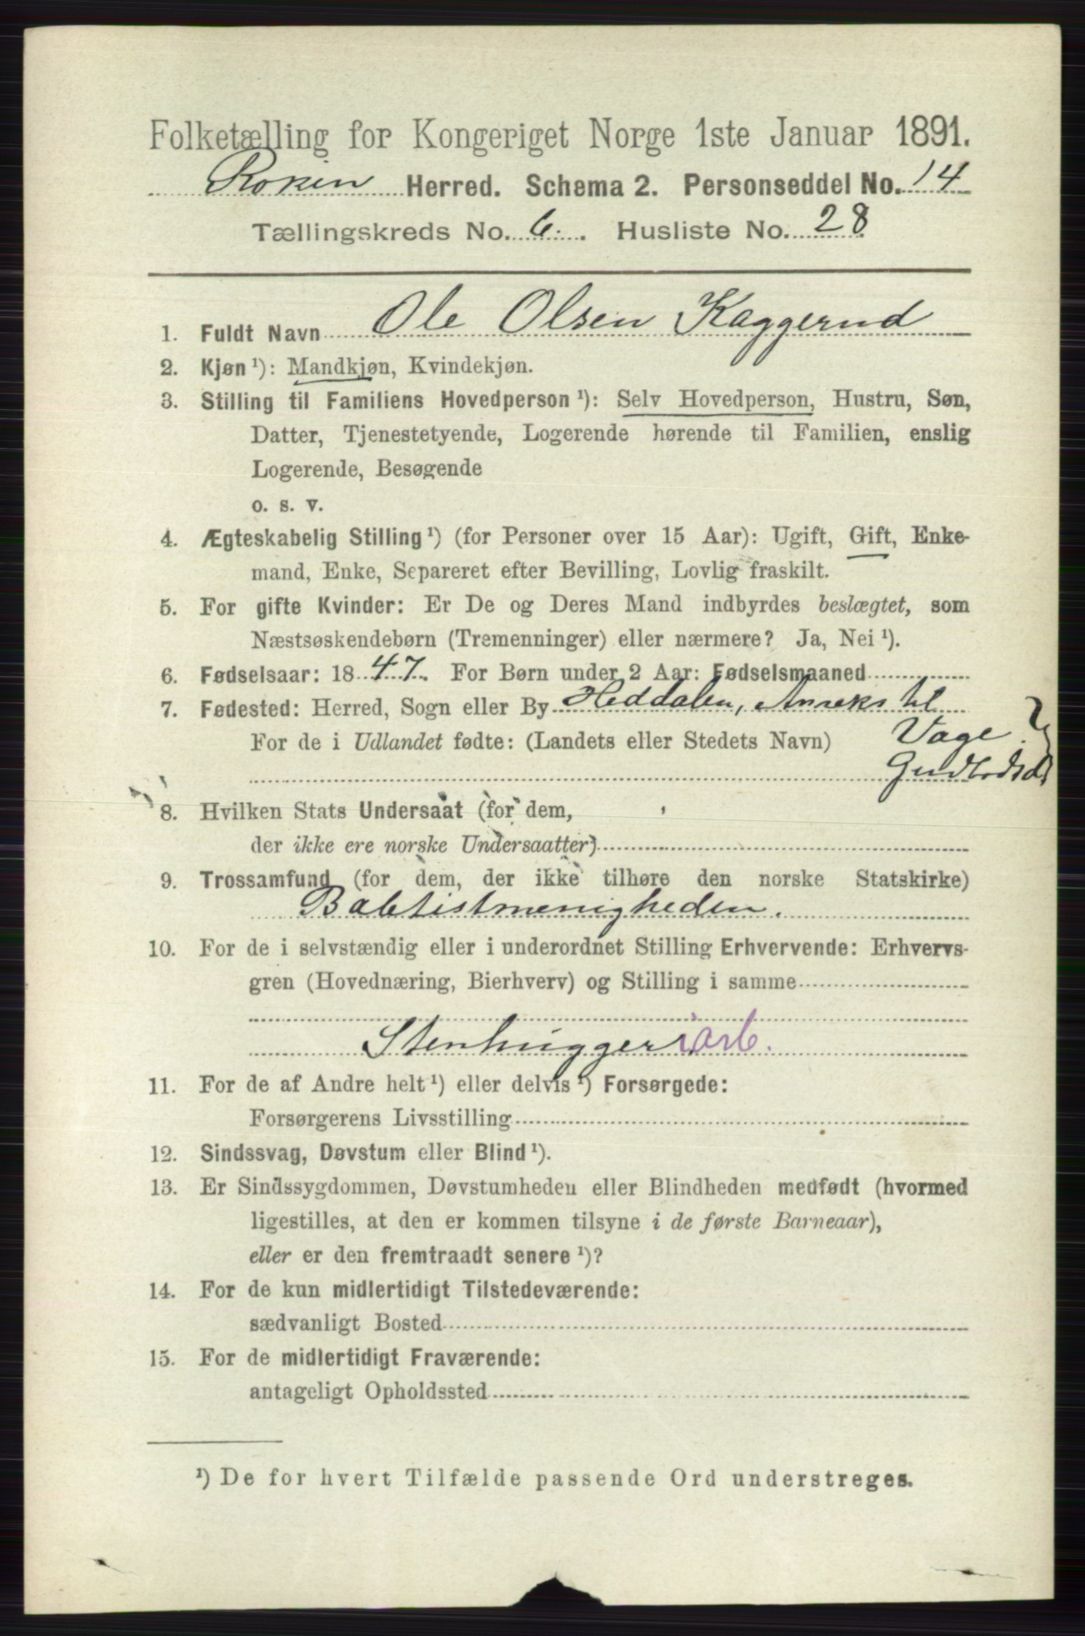 Folketælling for Kongeriget Norge 1ste Januar 1891.
Röken Herred. Schema 2. Personseddel No. 14
Tællingskreds No. 6. Husliste No. 28
1. Fuldt Navn Ole Olsen Kaggerud
2. Kjøn ¹): Mandkjøn, Kvindekjøn.
3. Stilling til Familiens Hovedperson ¹): Selv Hovedperson, Hustru, Søn,
Datter, Tjenestetyende, Logerende hørende til Familien, enslig
Logerende, Besøgende
o. s. v.
4. Ægteskabelig Stilling ¹) (for Personer over 15 Aar): Ugift, Gift, Enke-
mand, Enke, Separeret efter Bevilling, Lovlig fraskilt.
5. For gifte Kvinder: Er De og Deres Mand indbyrdes beslægtet, som
Næstsøskendebørn (Tremenninger) eller nærmere? Ja, Nei ¹).
6. Fødselsaar: 1847. For Børn under 2 Aar: Fødselsmaaned
7. Fødested: Herred, Sogn eller By Heddalen, Anneks til
For de i Udlandet fødte: (Landets eller Stedets Navn) Vage ?
8. Hvilken Stats Undersaat (for dem,
der ikke ere norske Undersaatter)
9. Trossamfund (for dem, der ikke tilhøre den norske Statskirke)
Babtistmenigheden.
10. For de i selvstændig eller i underordnet Stilling Erhvervende: Erhvervs-
gren (Hovednæring, Bierhverv) og Stilling i samme
Stenhuggeriarb.
11. For de af Andre helt ¹) eller delvis ¹) Forsørgede:
Forsørgerens Livsstilling
12. Sindssvag, Døvstum eller Blind ¹).
13. Er Sindssygdommen, Døvstumheden eller Blindheden medfødt (hvormed
ligestilles, at den er kommen tilsyne i de første Barneaar),
eller er den fremtraadt senere ¹)?
14. For de kun midlertidigt Tilstedeværende:
sædvanligt Bosted
15. For de midlertidigt Fraværende:
antageligt Opholdssted
¹) De for hvert Tilfælde passende Ord understreges.